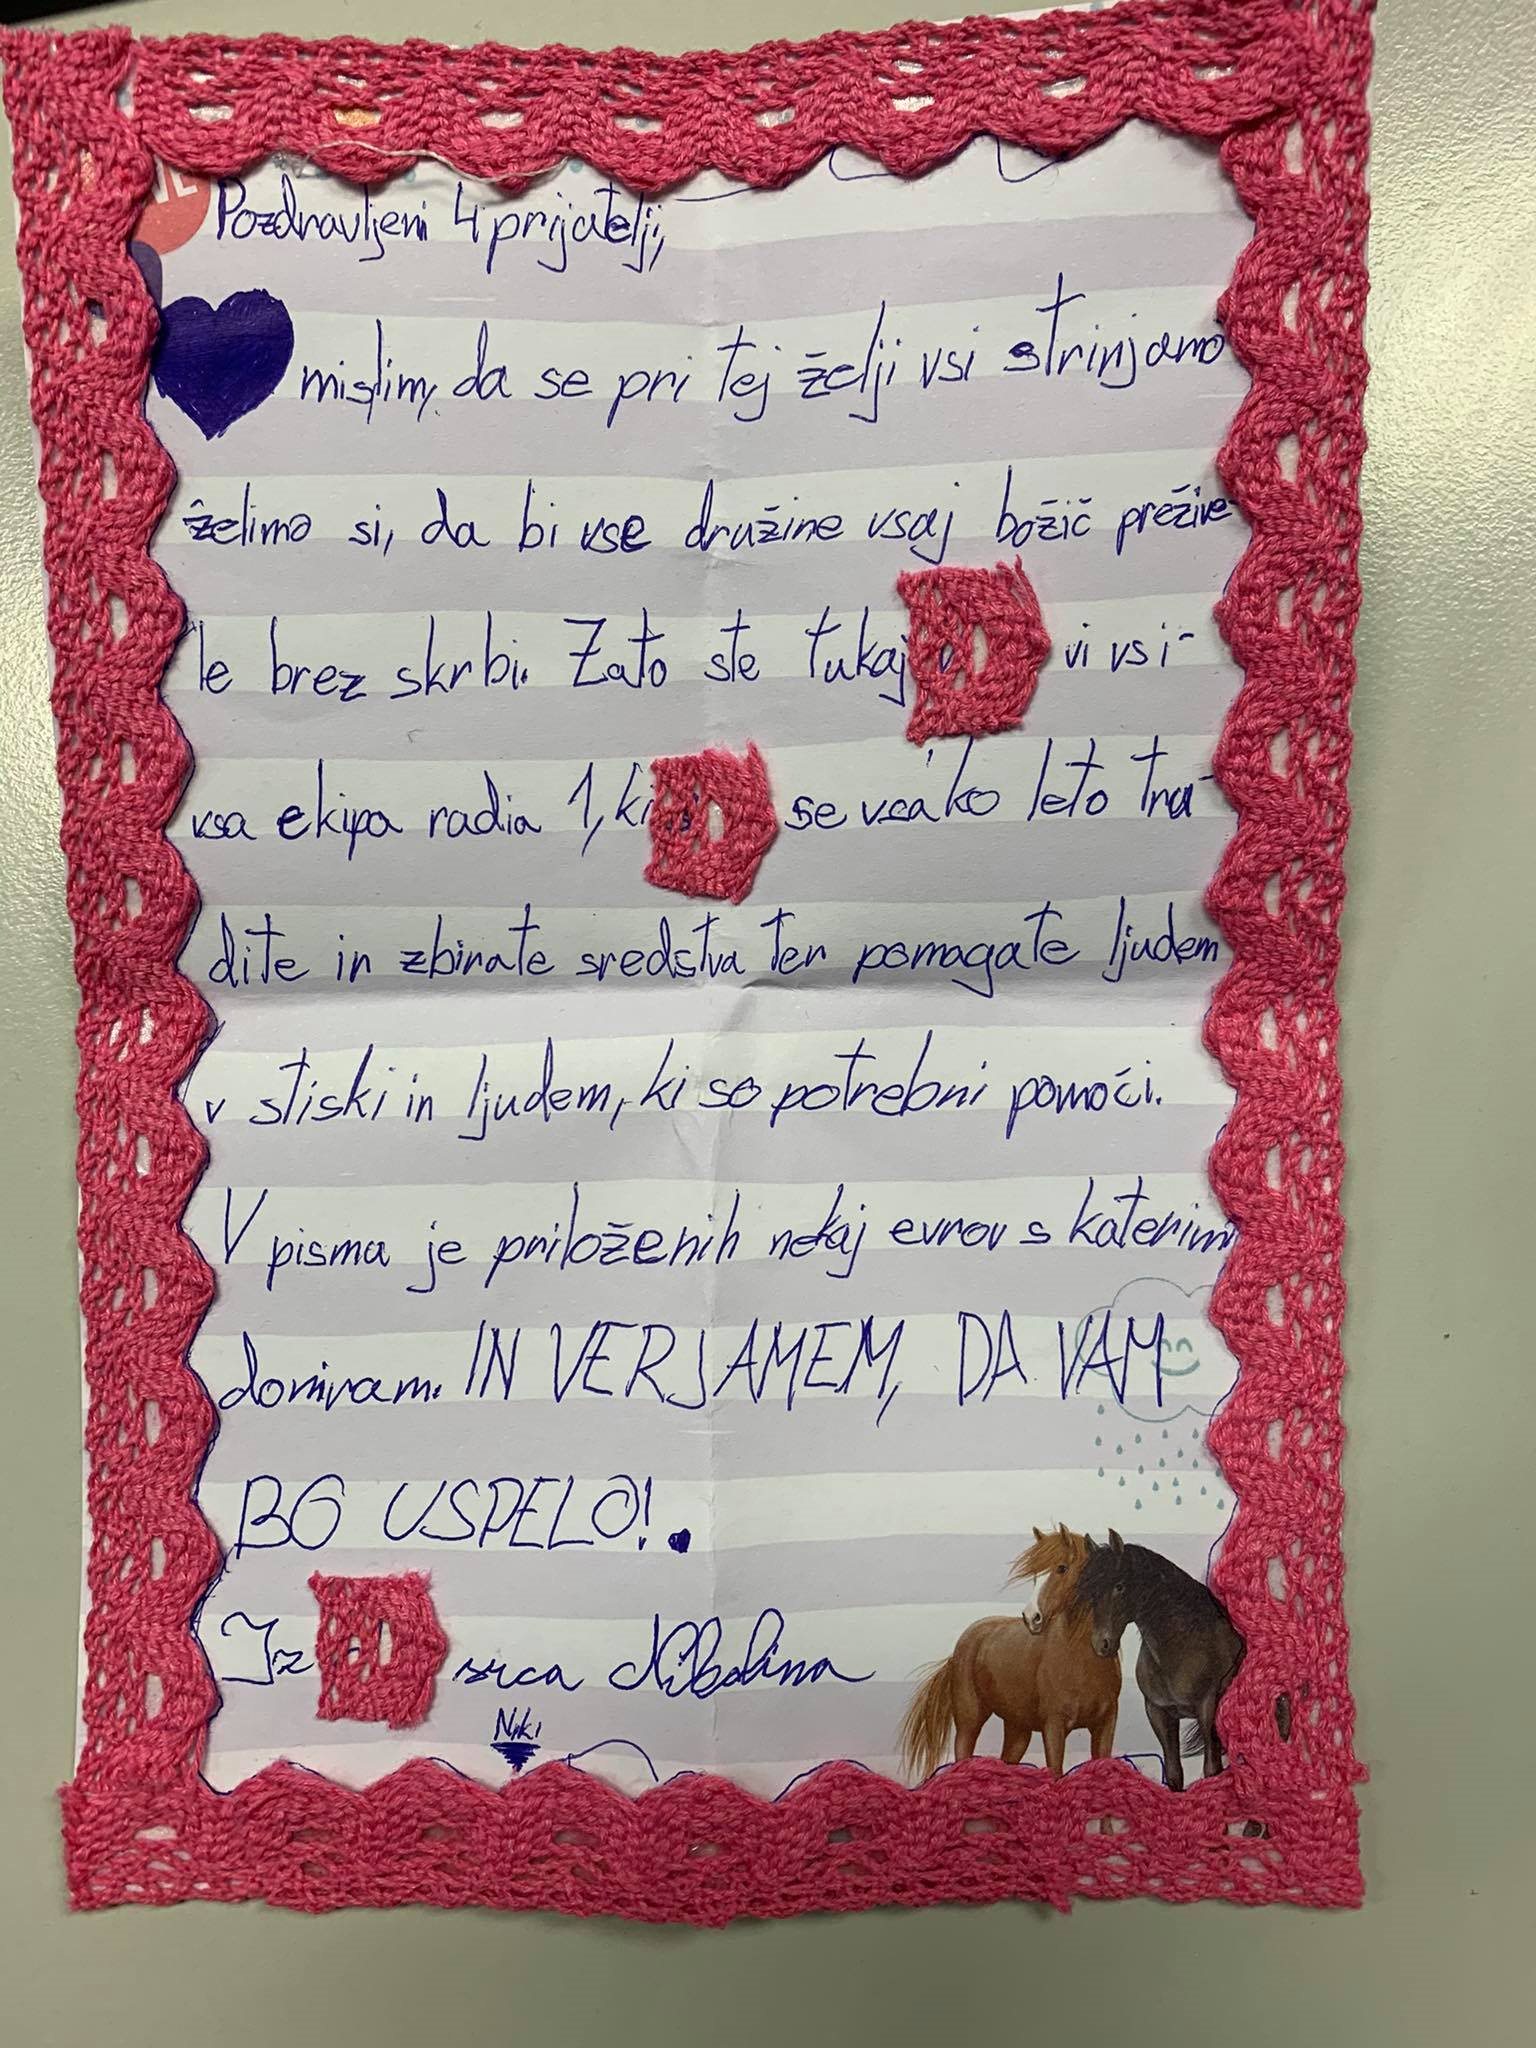 Pozdravljeni 4 prijatelji,
mislim, da se pri tej želji vsi strinjamo
želimo si, da bi vse družine vsaj božič prežive-
le brez skrbi. Zato ste tukaj vi vsi-
vsa ekipa radia 1, ki se vsako leto tru-
dite in zbirate sredstva ter pomagate ljudem
v stiski in ljudem, ki so potrebni pomoči.
V pisma je priloženih nekaj evrov s katerimi
doniram. IN VERJAMEM, DA VAM
BO USPELO!.
Iz srca Nikolina
Niki